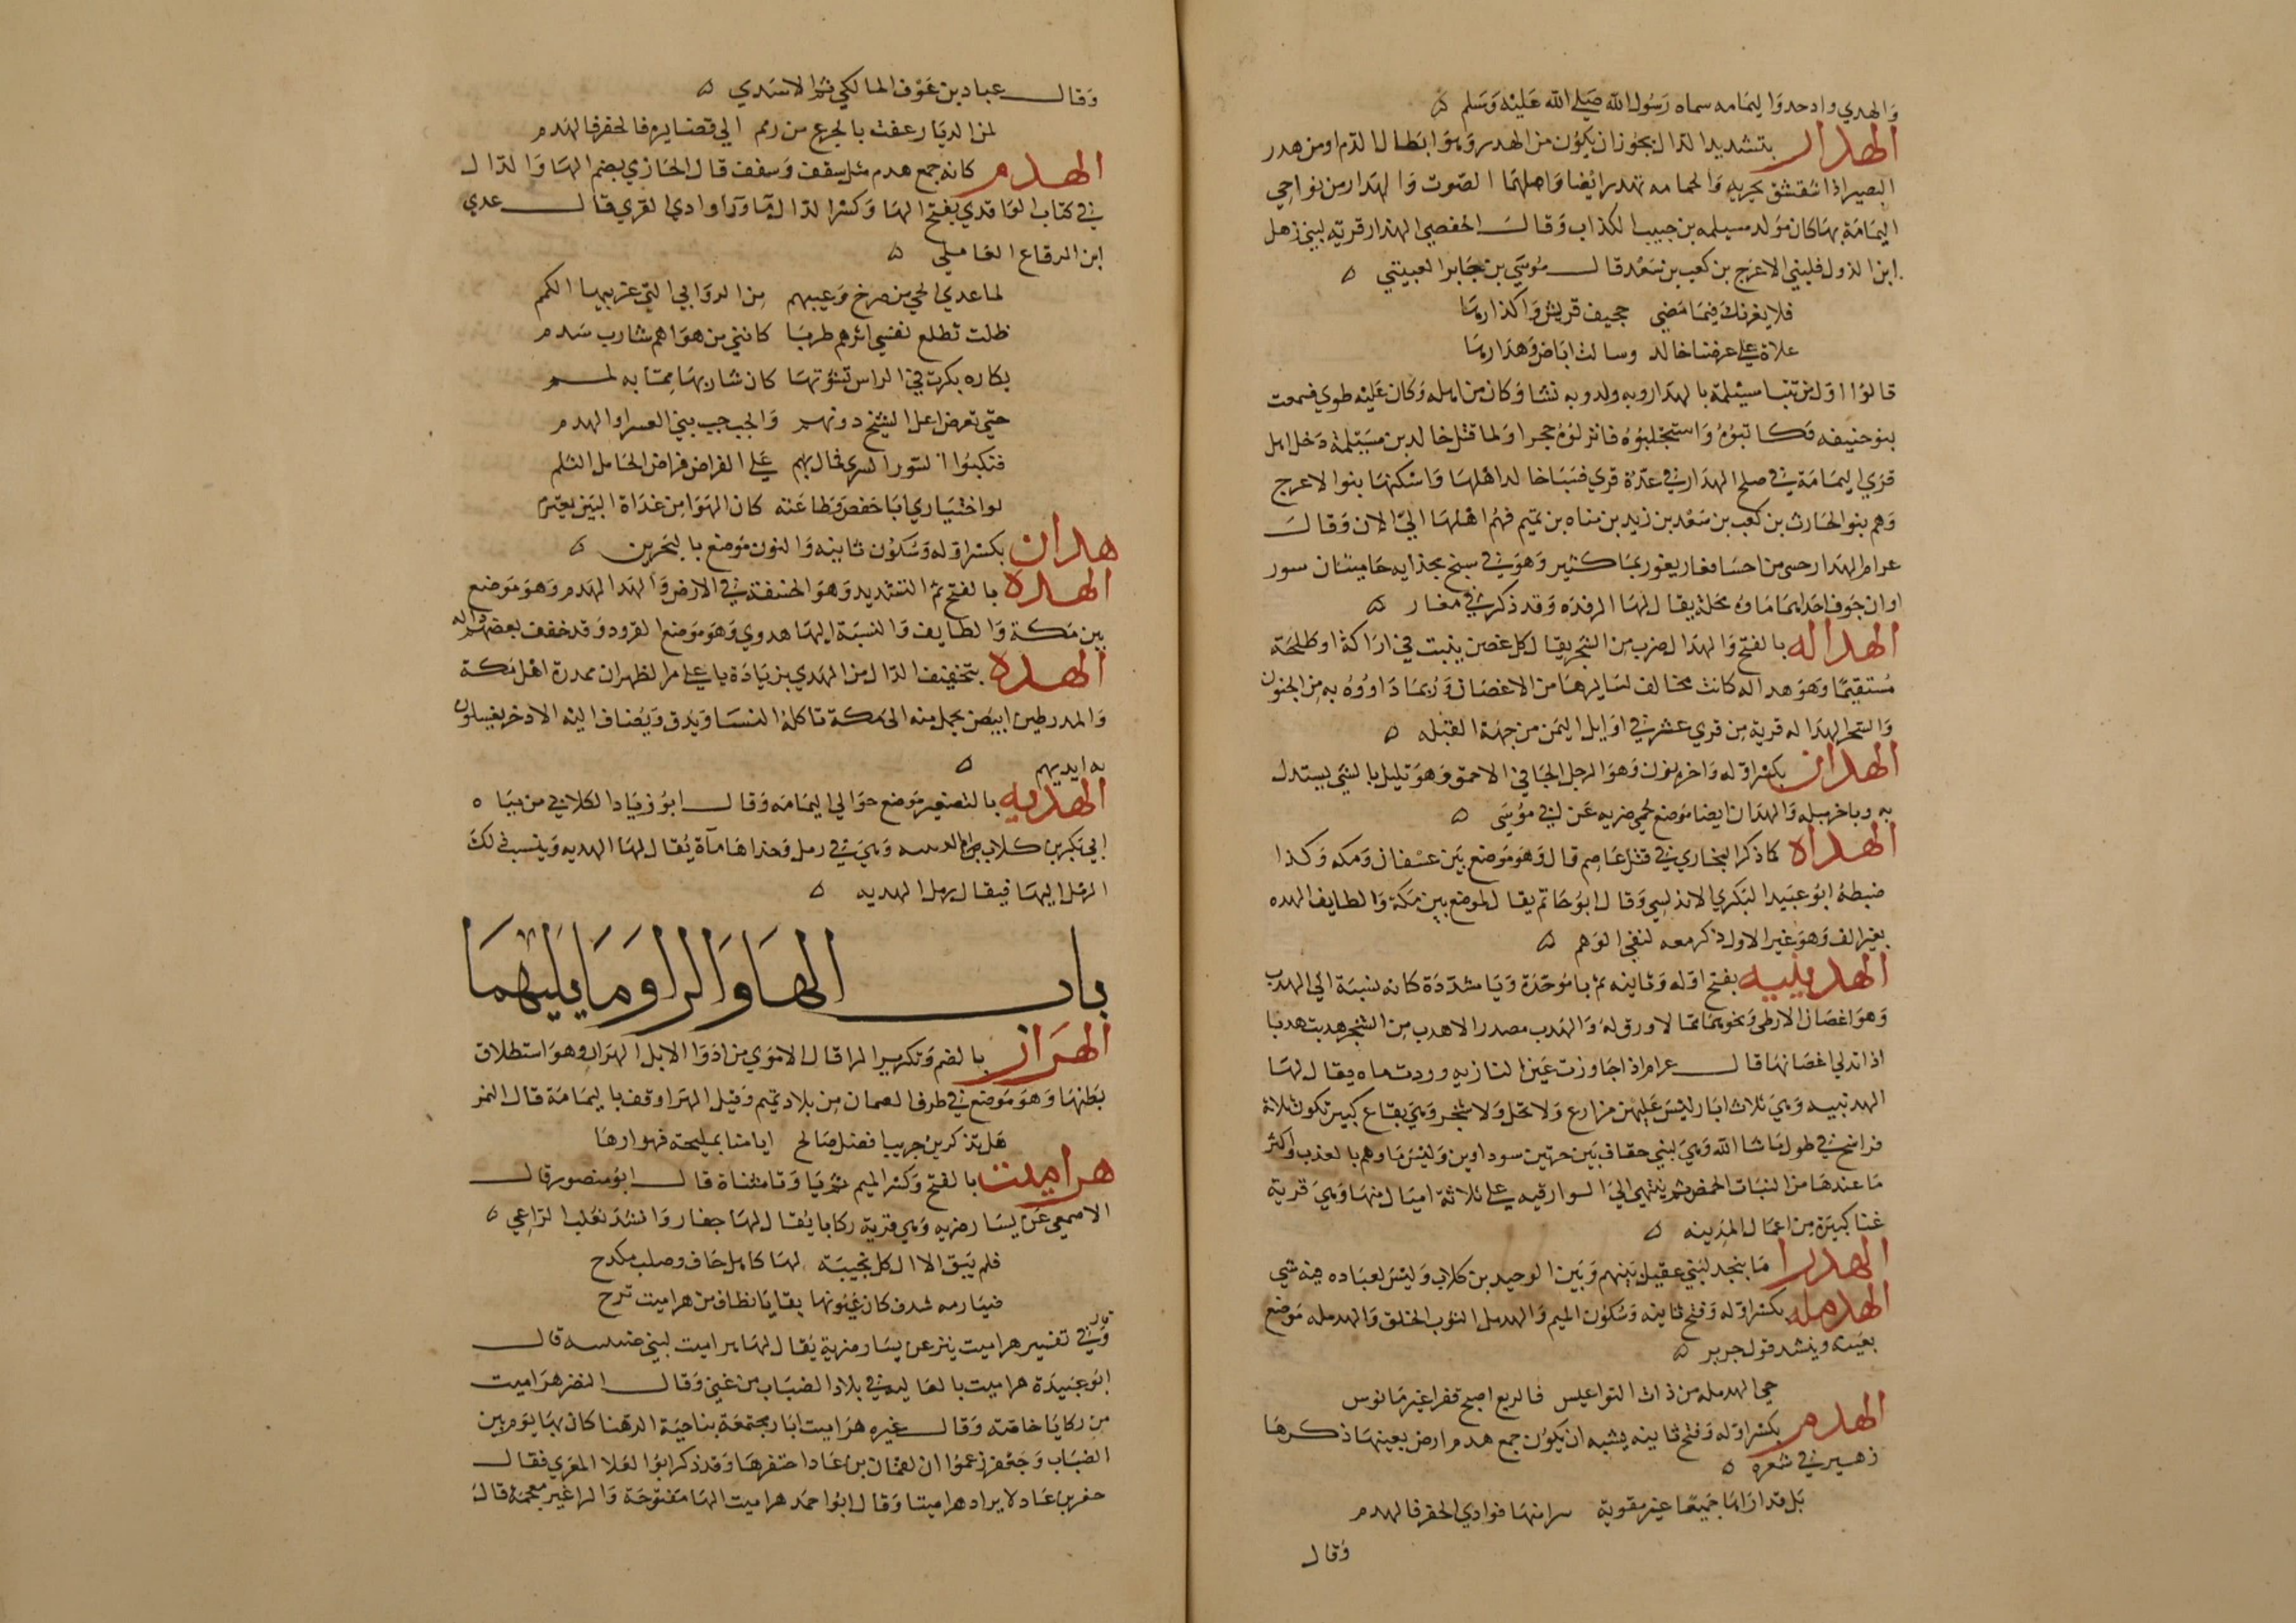 والهدي وادحد واليمامه سماه رسول الله صلي الله عليه وسلم ه
الهدار بتشديد الدال يجوز ان يكون من الهدر وهو ابطال الدم او من هدر
البعير اذا شقشق بجريه والحمامه تهدر ايضا واصلهما الصوت والهدار من نواحي
اليمامة بها كان مولد مسيلمه بن حبيب الكذاب وقال الحفصي الهدار قرية لبني ذهل
ابن الدول فلبني الاعرج بن كعب بن سعد قال موسي بن جابر العبيثي ه
فلا يغرنك فيما مضي جحيف قريش واكذارها
علاة علي عرضنا خالد وسالت اباض وهدارها
قالوا اول من تنبا مسيلمة بالهدار وبه ولد وبه نشا وكان من اهله وكان عليه طوي فسمعت
بنو حنيفه فكاتبوه واستجلبوه فانزلوه حجرا ولما قتل خالد بن مسيلمة دخل اهل
قري اليمامة في صلح الهدار في عدة قري فسبا خالد اهلها واسكنها بنوا الاعرج
وهم بنو الحارث بن كعب بن سعد بن زيد بن مناه بن تميم فهم اهلها الي الان وقال
عرام الهدار حسي من احسا مغار يغور بما كثير وهو في سبخ بحذايه حاميتان سور
اوان جوف احدهما ماوه مخلة يقال لها الرفده وقد ذكر في مغار ه
الهداله بالفتح والهدال ضرب من الشجر يقال كل غصن ينبت في اراكة او طلحة
مستقيما وهو هداله كانت مخالف لسايرها من الاغصان وربما داووه به من الجنون
والسحر الهداله قرية من قري عشر في اوايل اليمن من جهة القبله ه
الهدان بكسر اوله واخره نون وهو الرجل الجافي الاحمق وهو تليل بالشي يستدل
به وباخر مثله والهدان ايضا موضع بحمي ضريه عن لبي موسي ه
الهداه كما ذكر البخاري في قتل عاصم قال وهو موضع بين عسفان ومكه وكذا
ضبطه ابو عبيد البكري الاندلسي وقال ابو حاتم يقال لموضع بين مكة والطايف الهده
بغير الف وهو غير الاول ذكر معه لنفي الوهم ه
الهدبييه بفتح اوله وثانيه ثم با موحدة ويا مشددة كانه نسبة الي الهدب
وهو اغصان الارطي ونحوها مما لا ورق له والهدب مصدر الاهدب من الشجر هدبت هدبا
اذا تدلي اغصانها قال عرام اذا جاوزت عين النازيه وردت ماه يقال لها
الهدبيه وهي ثلاث ابار ليس عليهن مزارع ولا نخل ولا شجر وهي بقاع كبير تكون ثلاثة
فراسخ في طول ما شا الله وهي لبني خفاف بين حرتين سوداوين وليس ماوهم بالعذب واكثر
ما عندها من النبات الحمض ثم ينتهي الي السوارقيه علي ثلاثة اميال منها وهي قرية
غنا كبيرة من اعمال المدينه ه
الهدرا ما بنجد لبني عقيل بينهم وبين الوحيد بن كلاب وليس لعباده فيه شي
الهدمله بكسر اوله وفتح ثانيه وسكون الميم والهدمل الثوب الخلق والهدمله موضع
بعينه وينشد قول جرير ه
حي الهدمله من ذات المواعيس فالربع اصبح قفرا غير مانوس
الهدم بكسر اوله وفتح ثانيه يشبه ان يكون جمع هدم ارض بعينها ذكرها
زهير في شعره ه
بل قد اراها جميعا غير مقوية سرا منها فوادي الحفر فالهدم
وقال
وقال عباد بن عوف المالكي ثم الاسدي ه
لمن الديار عفت بالجرع من رمم الي قضايره فالحفر فالهدم
الهدم كانه جمع هدم مثل سقف وسقف قال الحازي بضم الها والدال
في كتاب الواقدي بفتح الها وكسر الدال ما وراوادي القري قال عدي
ابن الرقاع العاملي ه
لما عدي الحي من صرخ وعيبهم من الروابي التي عربيها الكمم
ظلت تطلع نفسي اثرهم طربا كانني من هواهم شارب سدم
بكاره بكرت في الراس تشوتها كان شاربها مما به لمم
حتي تعرض اعل الشيخ دونهم والجب جب بني العسرا والهدم
فتكبوا الستور السري فحال بهم علي الفراض فراض الحامل الثلم
لو اختياري ابا حفص وطاعته كان الهوا من غداة البين يعتزم
هدان بكسر اوله وسكون ثانيه والنون موضع بالبحرين ه
الهده بالفتح ثم التشديد وهو الخسفة في الارض والهد الهدم وهو موضع
بين مكة والطايف والنسبة اليها هدوي وهو موضع القرود وقد خفف بعضهم داله
الهده بتخفيف الدال من الهدي بزيادة با علي مر الظهران ممدرة اهل مكة
والمدر طين ابيض يحمل منه الي مكة تاكله النسا ويدق ويضاف اليه الادخر يغسلون
به ايديهم ه
الهديه بالتصغير موضع حوالي اليمامه وقال ابو زياد الكلابي من مياه
ابي بكر بن كلاب وهي في رمل وحذاها ماة يقال لها الهديه وينسب ذلك
الرمل اليها فيقال رمل الهديه ه
باب الها والرا وما يليهما
الهرار بالضم وتكرير الرا قال الاموي من ادوا الابل الهرار وهو استطلاق
بطنها وهو موضع في طرف الصمان من بلاد تميم وقيل الهرار وقف باليمامة قال النمر
هل تذكرين جريبا فضل صالح ايامنا بمليحة فهرارها
هراميت بالفتح وكسر الميم ثم يا وتا مثناة قال ابو منصور قال
الاصمعي عن يسار ضريه وهي قرية ركايا يقال لها جفار وانشد ثعلب الراعي ه
فلم يبق الا ال كل نجيبة لها كاهل حاف وصلب مكدح
ضبارمه شدف كان عيونها بقايا نطاف من هراميت تزح
قال
وفي تفسير هراميت بئر عن يسار ضرية يقال لها هراميت لبني ضبيبه قال
ابو عبيدة هراميت بالعاليه في بلاد الضباب من غني وقال النضر هراميت
من ركايا خاصة وقال غيره هراميت ابار مجتمعة بناحية الدهنا كان بها يوم بين
الضباب وجعفر زعموا ان لقمان بن عاد احتفرها وقد ذكر ابو العلا المعري فقال
حفر بن عاد لايراد هراميتا وقال ابو احمد هراميت الها مفتوحة والرا غير معجمة قال